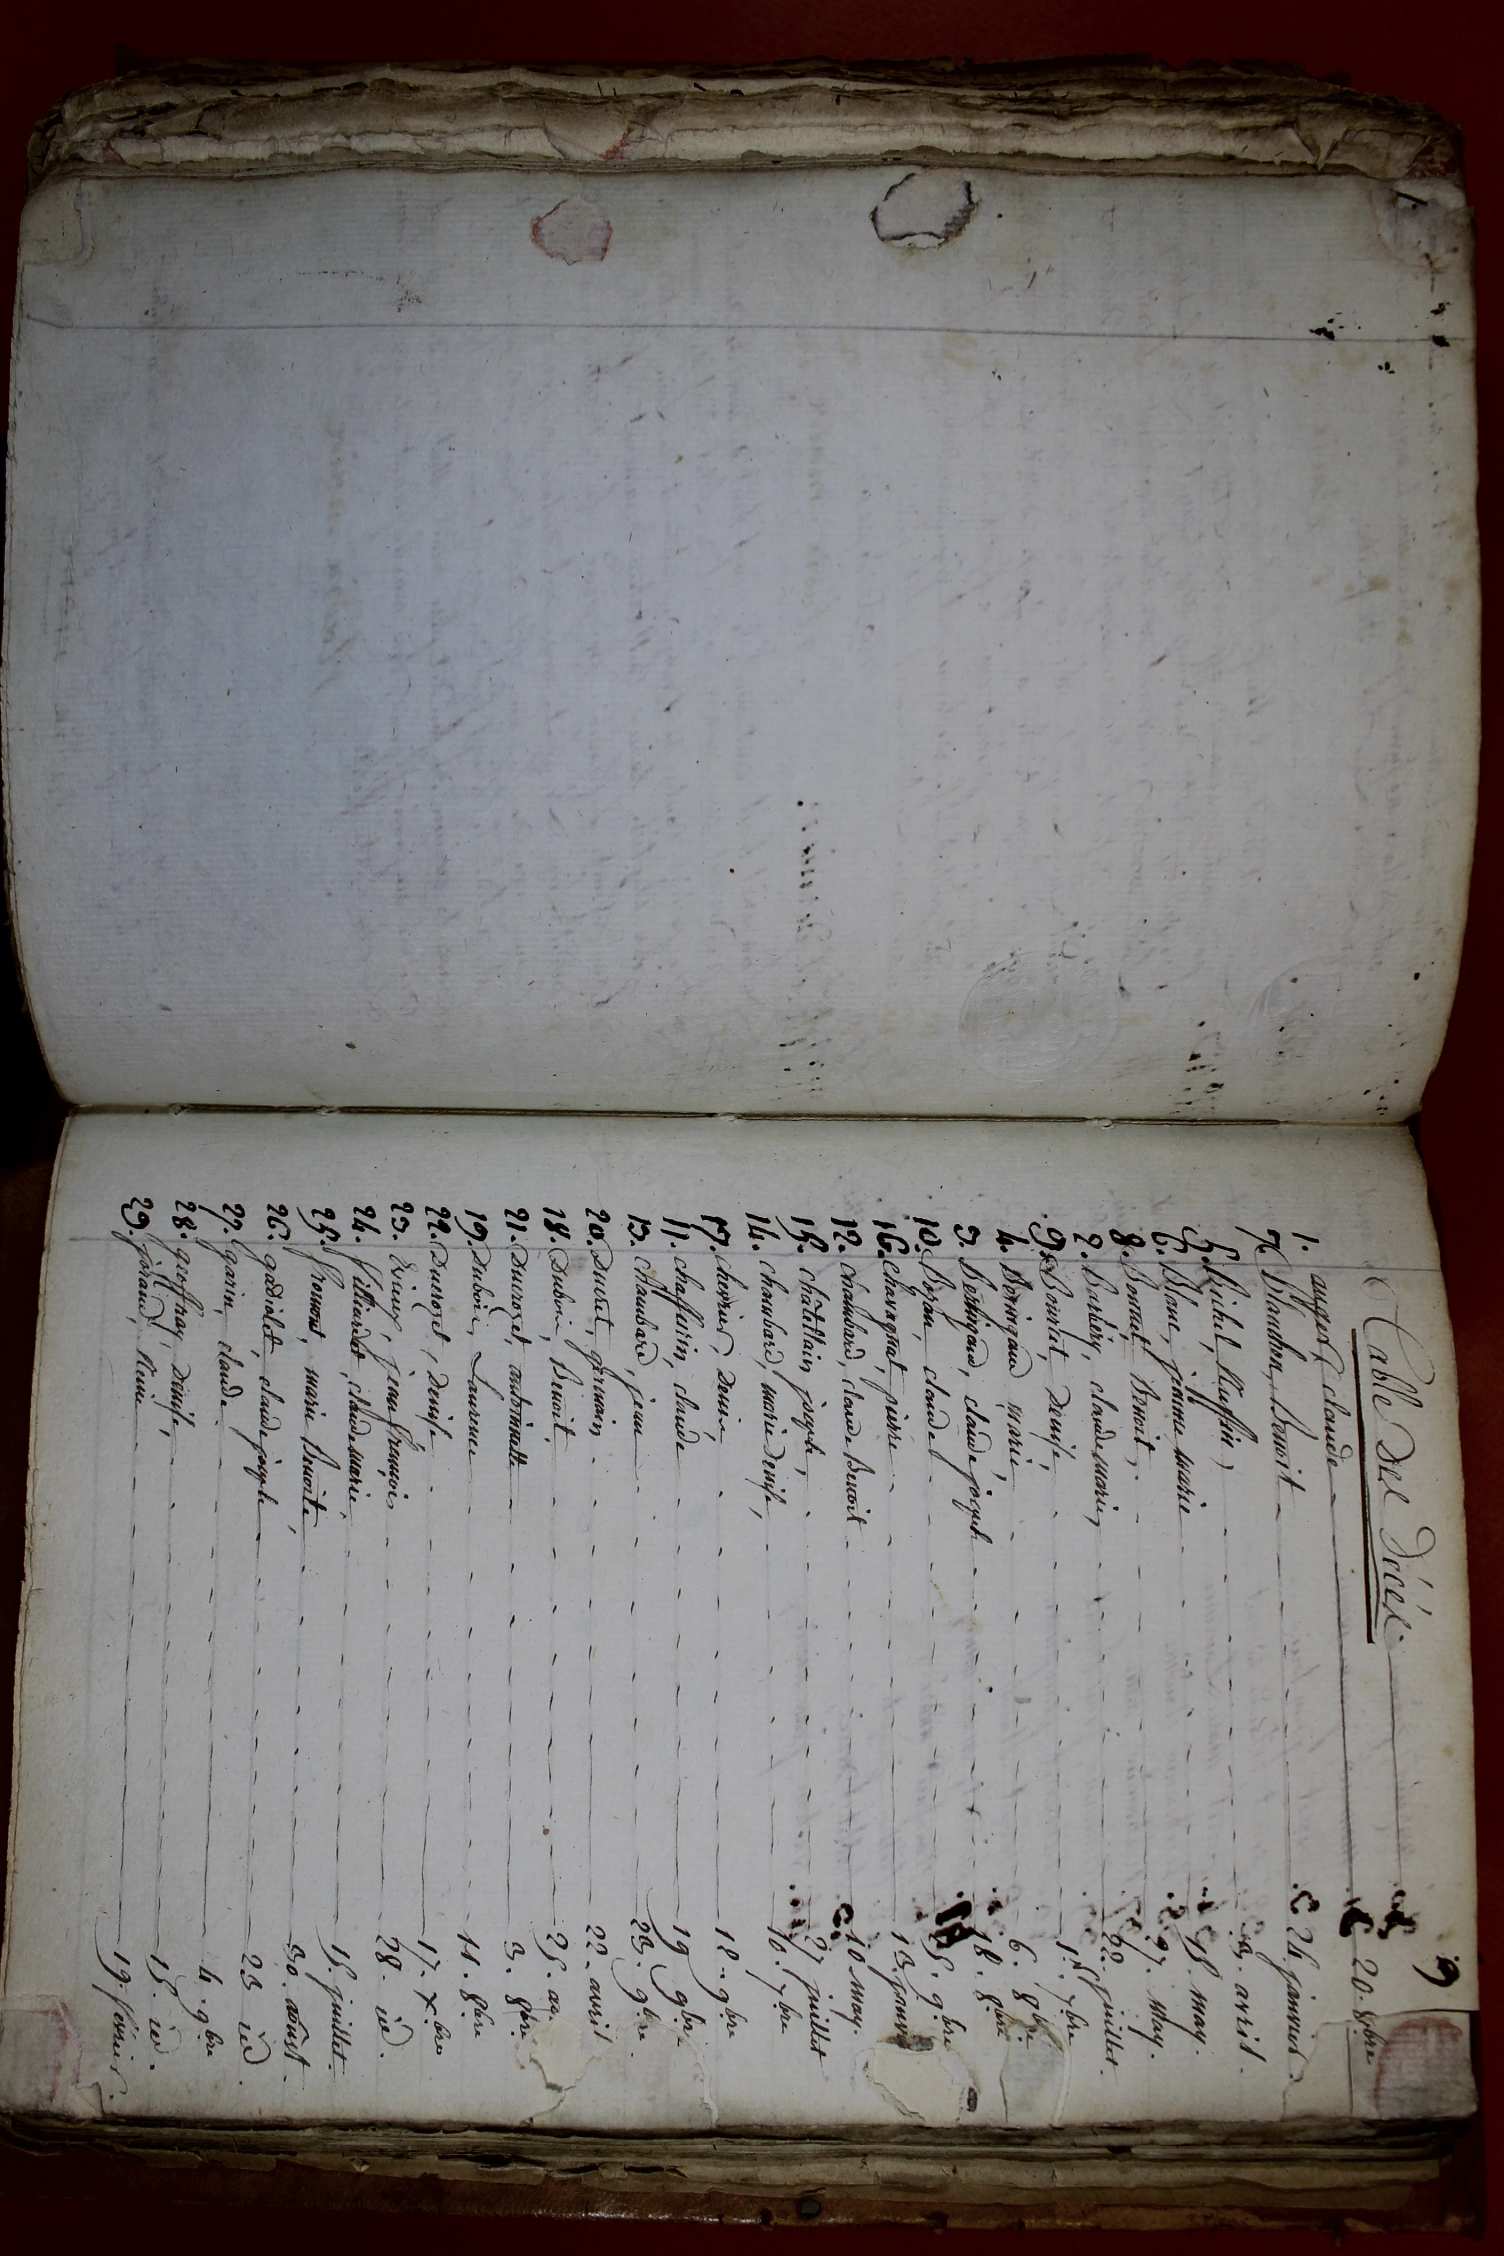 9
Table des décès.
1. auger, claude 20. 8bre
7. Blanchon, Benoit 24. janvier.
5. Bichet, 3. avril.
6. Blanc, jeanne marie 18. may.
8. Bonnet, Benoit, 27. may.
2. Barbery, claude marie, 22. juillet.
9. Bourlet, denise, 1. 7bre
4. Beringaud, marie, 6. 8bre
3. Beringaud, claude joseph 18. 8bre
10. claude 25. 9bre
16. Chavagnat, pierre 13. janv
12. chambard, claude Benoit 10 may.
15. châtelain joseph, 27 juillet
14. chambard, marie denise, 10. 7bre
17. chevrier, denis 12. 9bre
11. chaffurin, claude 19 9bre
13. chambard, jean 23. 9bre.
20. Durut, germain 22. avril
18. Dubois, Benoit, 25. ao.
21. Durozet, antoinette 3. 8bre.
19. Dubois, Laurence 11. 8bre
22. Durozet, denise 17. Xbre
23. jean françois 28. id.
24. fillardet, claude marie, 15. juillet.
25. fromont, marie Benoite, 30. aoust.
26. gadiolet, claude joseph 23 id.
27. garin, claude 4. 9bre
28. geoffray denise, 15. id.
29. giraud, Reine 19. février.